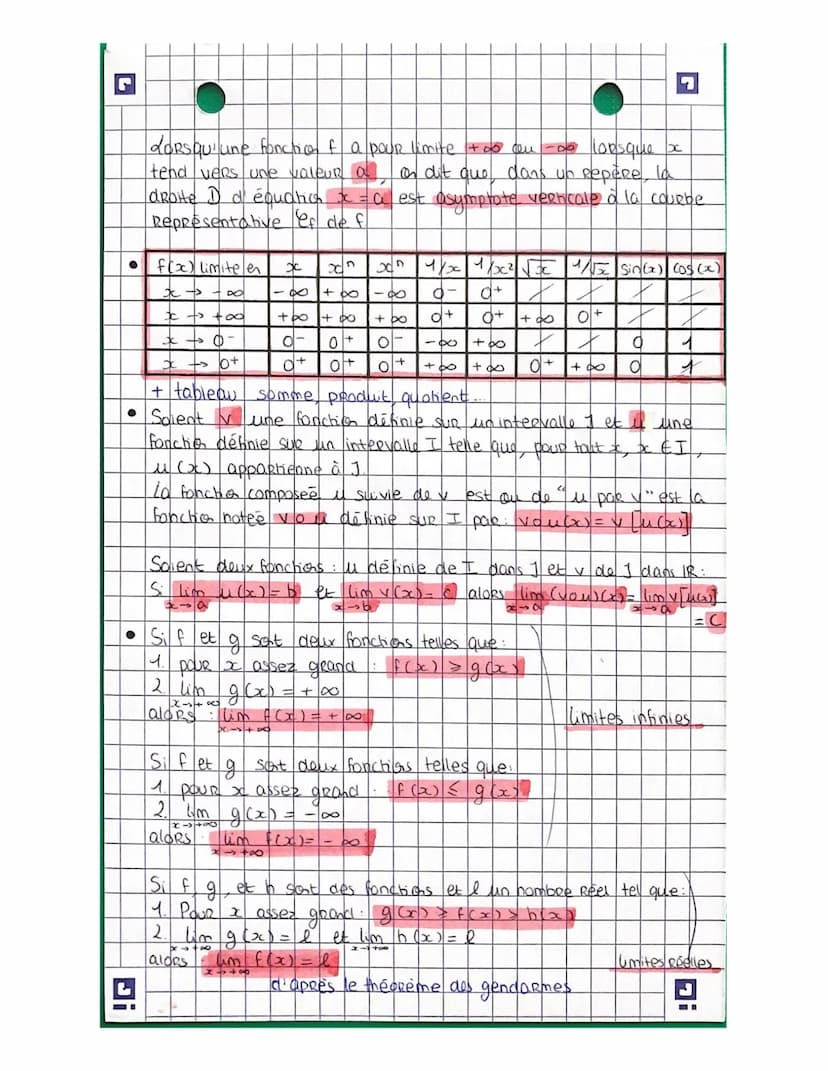 Lorsqu'une fonction f a pour limite +∞ ou -∞ lorsque x
tend vers une valeur a, on dit que, dans un repère, la
droite D d'équation x = a est asymptote verticale à la courbe
représentative Cf de f
• f(x) limite en x xⁿ xⁿ 1/x 1/x² √x 1/√x sin(x) cos(x)
x → -∞ -∞ +∞ -∞ 0- 0+ / / / /
x → +∞ +∞ +∞ +∞ 0+ 0+ +∞ 0+ / /
x → 0- 0- 0+ 0- -∞ +∞ / / 0 1
x → 0+ 0+ 0+ 0+ +∞ +∞ 0+ +∞ 0 1
+ tableau somme, produit, quotient...
• Soient v une fonction définie sur un intervalle J et u une
fonction définie sur un intervalle I telle que, pour tout x, x ∈ I,
u(x) appartienne à J.
La fonction composée u suivie de v est ou de "u par v" est la
fonction notée v o u définie sur I par: vou(x) = v[u(x)]
Soient deux fonctions : u définie de I dans J et v de J dans IR:
Si lim u(x) = b et lim v(x) = c alors lim (vou)(x) = lim v[u(x)]
x→a x→b x→a x→a
= c
• Si f et g sont deux fonctions telles que:
1. pour x assez grand : f(x) ⩾ g(x)
2. lim g(x) = +∞
x→+∞
alors : lim f(x) = +∞
x→+∞
limites infinies
Si f et g sont deux fonctions telles que:
1. pour x assez grand : f(x) ≤ g(x)
2. lim g(x) = -∞
x→+∞
alors : lim f(x) = -∞
x→+∞
Si f, g, et h sont des fonctions et l un nombre réel tel que:
1. Pour x assez grand: g(x) ⩾ f(x) ⩾ h(x)
2. lim g(x) = l et lim h(x) = l
x→+∞ x→+∞
alors lim f(x) = l
x→+∞
limites réelles
d'après le théorème des gendarmes